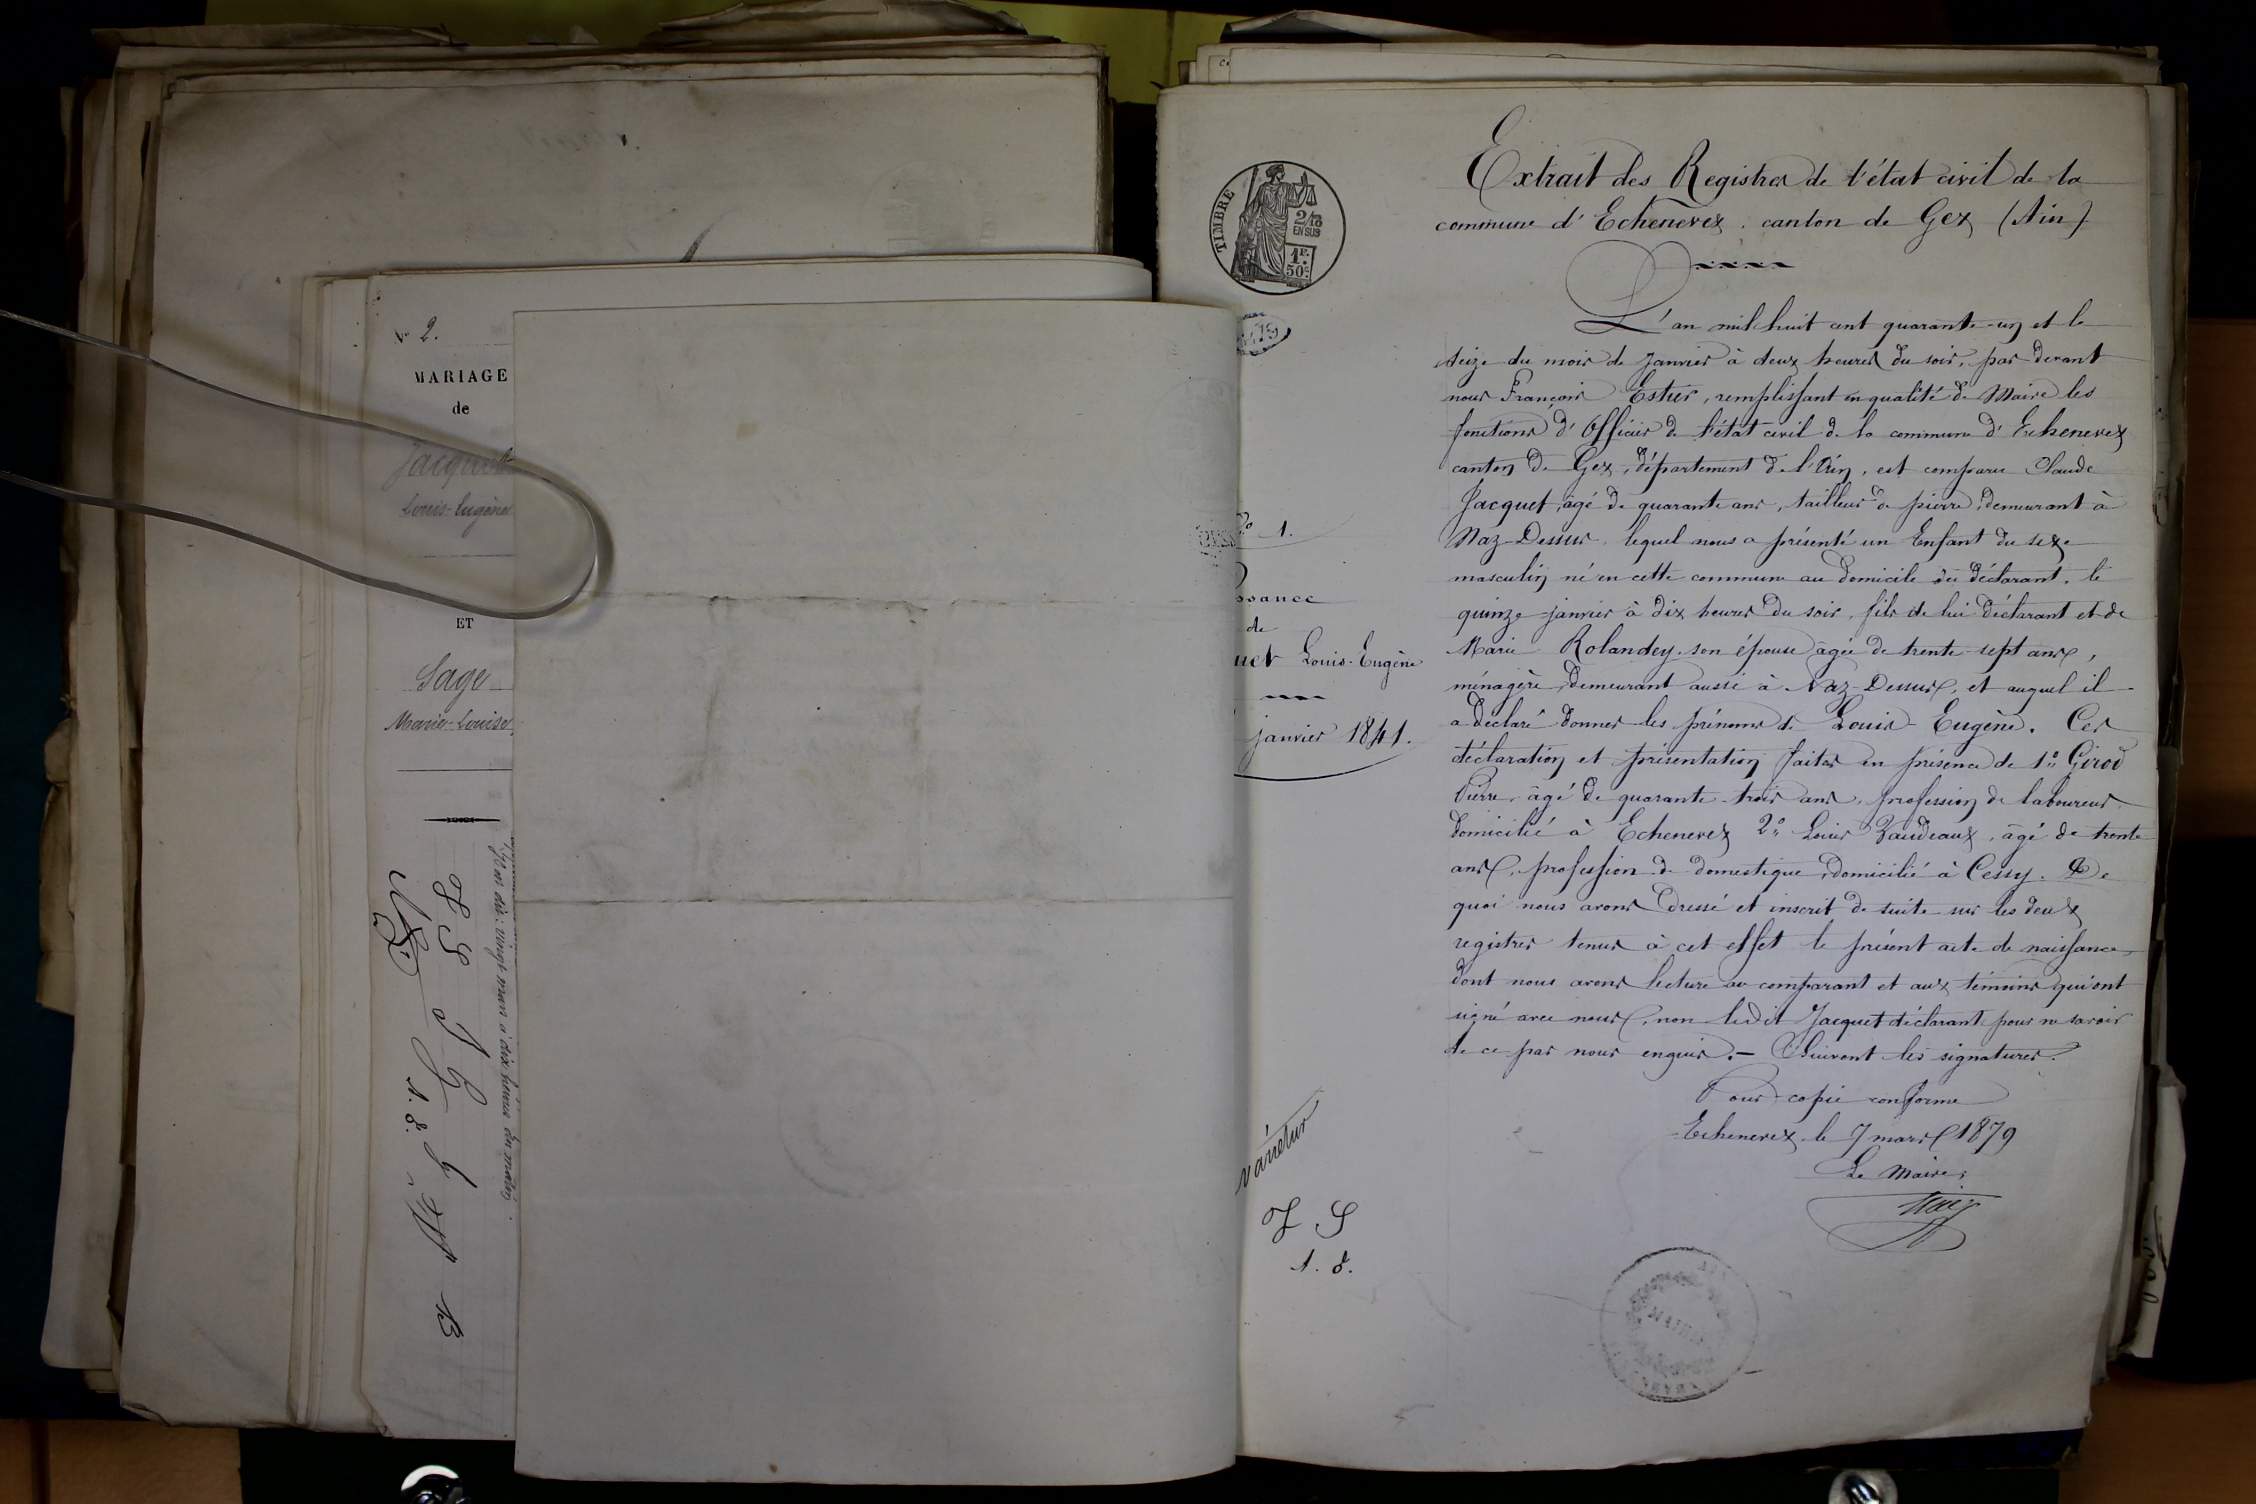 N° 2.
MARIAGE
de
Jacquet
Louis-Eugène
ET
Sage
Marie-Louise
vingt mars à dix heures du matin.
TIMBRE
2/10
EN SUS
1F.
50c.
1.
ssance
de
uet Louis-Eugène
janvier 1841.
varietur
J S
A. d.
Extrait des Registres de l'état civil de la
commune d'Echenevex. canton de Gex (Ain)
L'an mil huit cent quarante-un et le
seize du mois de janvier à deux heures du soir, par devant
nous François Estier, remplissant en qualité de Maire les
fonctions d'Officier de l'état civil de la commune d'Echenevex
canton de Gex, département de l'Ain, est comparu Claude
Jacquet, âgé de quarante ans, tailleur de pierre, demeurant à
Naz-Dessus, lequel nous a présenté un Enfant du sexe
masculin né en cette commune au domicile du déclarant, le
quinze janvier à dix heures du soir, fils de lui déclarant et de
Marie Rolandey, son épouse âgée de trente-sept ans,
ménagère, demeurant aussi à Naz-Dessus, et auquel il
a déclaré donner les prénoms de Louis-Eugène. Ces
déclaration et présentation faites en présence de 1° Girod
Pierre, âgé de quarante-trois ans, profession de laboureur
domicilié à Echenevex 2° Louis Vaudaux, âgé de trente
ans, profession de domestique, domicilié à Cessy. De
quoi nous avons dressé et inscrit de suite sur les deux
registres tenus à cet effet le présent acte de naissance
dont nous avons lecture au comparant et aux témoins qui ont
signé avec nous, non ledit Jacquet déclarant pour ne savoir
de ce par nous enquis.- Suivent les signatures.
Pour copie conforme
Echenevex le 7 mars 1879
Le Maire,